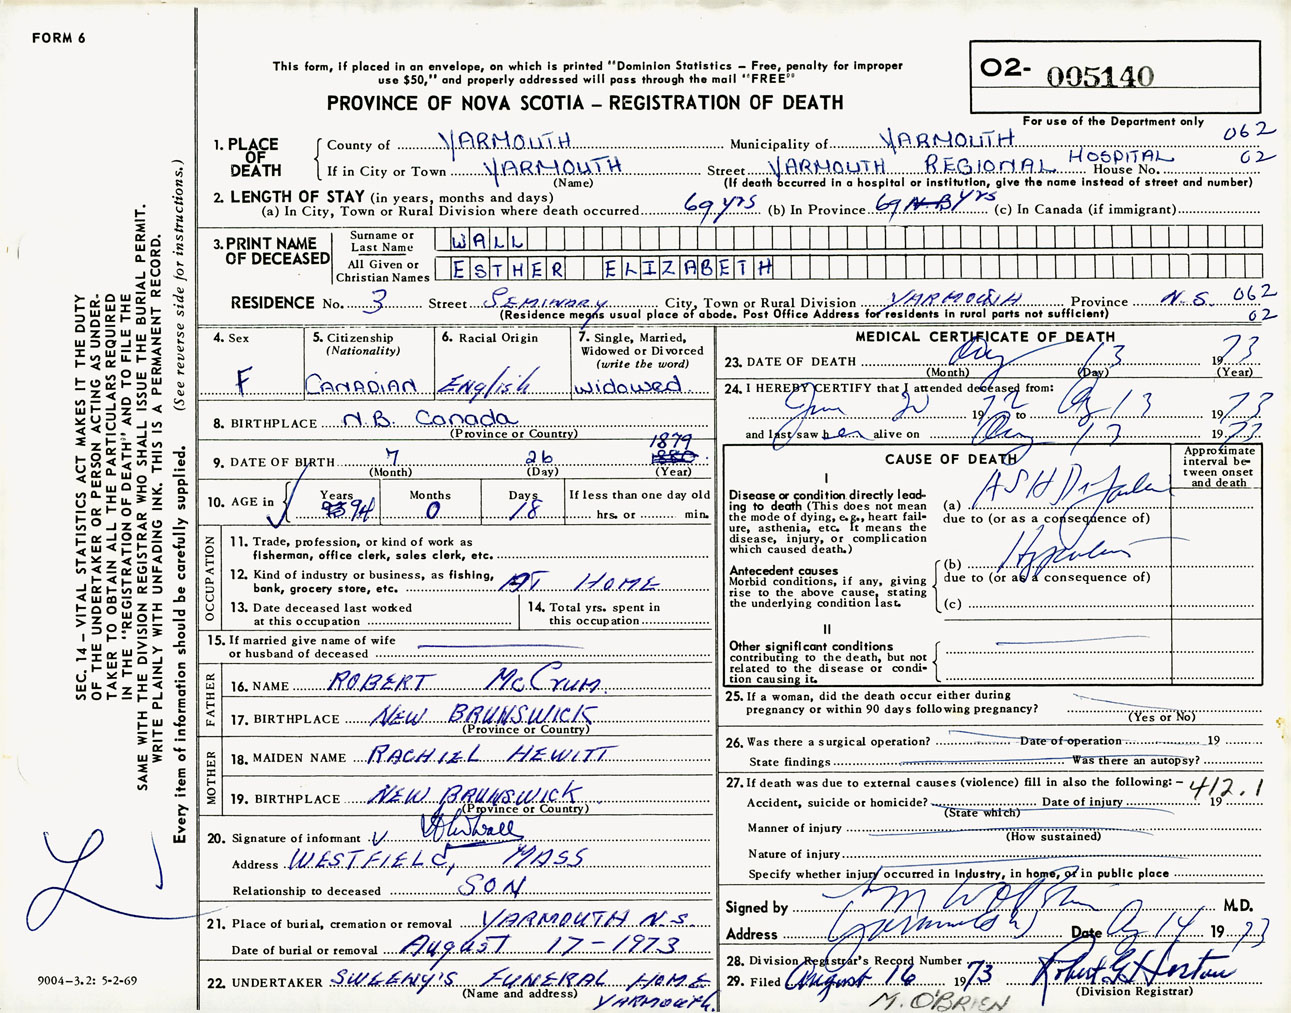 FORM 6
This form, if placed in an envelope, on which is printed "Dominion Statistics – Free, penalty for improper
use $50," and properly addressed will pass through the mail "FREE"
PROVINCE OF NOVA SCOTIA – REGISTRATION OF DEATH
O2- 005140
For use of the Department only
SEC. 14 – VITAL STATISTICS ACT MAKES IT THE DUTY
OF THE UNDERTAKER OR PERSON ACTING AS UNDER-
TAKER TO OBTAIN ALL THE PARTICULARS REQUIRED
IN THE "REGISTRATION OF DEATH" AND TO FILE THE
SAME WITH THE DIVISION REGISTRAR WHO SHALL ISSUE THE BURIAL PERMIT.
WRITE PLAINLY WITH UNFADING INK. THIS IS A PERMANENT RECORD.
Every item of information should be carefully supplied. (See reverse side for instructions.)
1. PLACE OF DEATH
County of YARMOUTH Municipality of YARMOUTH 062
If in City or Town YARMOUTH Street YARMOUTH REGIONAL HOSPITAL House No. 02
(Name) (If death occurred in a hospital or institution, give the name instead of street and number)
2. LENGTH OF STAY (in years, months and days)
(a) In City, Town or Rural Division where death occurred 69 yrs (b) In Province 69 yrs (c) In Canada (if immigrant)
3. PRINT NAME OF DECEASED
Surname or Last Name WALL
All Given or Christian Names ESTHER ELIZABETH
RESIDENCE No. 3 Street SEMINARY City, Town or Rural Division YARMOUTH Province N.S. 062
(Residence means usual place of abode. Post Office Address for residents in rural parts not sufficient) 02
4. Sex F
5. Citizenship (Nationality) CANADIAN
6. Racial Origin English
7. Single, Married, Widowed or Divorced (write the word) widowed
8. BIRTHPLACE N.B. Canada
(Province or Country)
9. DATE OF BIRTH 7 26 1879
(Month) (Day) (Year)
10. AGE in Years 94 Months 0 Days 18 If less than one day old hrs. or min.
OCCUPATION
11. Trade, profession, or kind of work as
fisherman, office clerk, sales clerk, etc.
12. Kind of industry or business, as fishing,
bank, grocery store, etc. AT HOME
13. Date deceased last worked at this occupation
14. Total yrs. spent in this occupation
15. If married give name of wife
or husband of deceased
FATHER
16. NAME ROBERT McCrum
17. BIRTHPLACE NEW BRUNSWICK
(Province or Country)
MOTHER
18. MAIDEN NAME RACHIEL HEWITT
19. BIRTHPLACE NEW BRUNSWICK
(Province or Country)
20. Signature of informant
Address WESTFIELD, MASS
Relationship to deceased SON
21. Place of burial, cremation or removal YARMOUTH N.S.
Date of burial or removal August 17-1973
22. UNDERTAKER SWEENY'S FUNERAL HOME
(Name and address) YARMOUTH.
MEDICAL CERTIFICATE OF DEATH
23. DATE OF DEATH Aug 13 1973
(Month) (Day) (Year)
24. I HEREBY CERTIFY that I attended deceased from:
1972 to Aug 13 1973
and last saw her alive on Aug 13 1973
CAUSE OF DEATH
Approximate interval between onset and death
I
Disease or condition directly lead-
ing to death (This does not mean
the mode of dying, e.g., heart fail-
ure, asthenia, etc. It means the
disease, injury, or complication
which caused death.)
(a) ASHD
due to (or as a consequence of)
Antecedent causes
Morbid conditions, if any, giving
rise to the above cause, stating
the underlying condition last.
(b)
due to (or as a consequence of)
(c)
II
Other significant conditions
contributing to the death, but not
related to the disease or condi-
tion causing it.
25. If a woman, did the death occur either during
pregnancy or within 90 days following pregnancy?
(Yes or No)
26. Was there a surgical operation? Date of operation 19
State findings Was there an autopsy?
27. If death was due to external causes (violence) fill in also the following: – 412.1
Accident, suicide or homicide? Date of injury 19
(State which)
Manner of injury
(How sustained)
Nature of injury
Specify whether injury occurred in Industry, in home, or in public place
Signed by M.D.
Address Date Aug 14 1973
28. Division Registrar's Record Number
29. Filed August 16 1973 Robert G Horton
(Division Registrar)
M. O'BRIEN
9004–3.2: 5-2-69